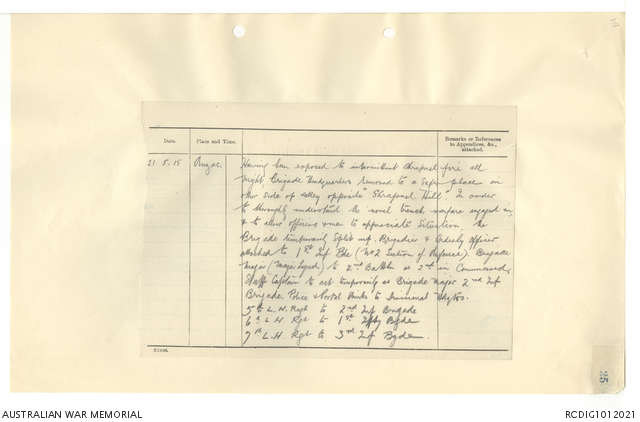 Date.
Place and Time.
Remarks or References
to Appendices, &c.,
attached.
21.5.15
Anzac.
Having been exposed to intermittent shrapnel fire all
night Brigade Headquarters removed to a safer place on
other side of valley opposite "Shrapnel Hill". In order
to thoroughly understand the novel trench warfare engaged in
& to allow officers & men to appreciate situation the
Brigade temporarily split up. Brigadier & Orderly Officer
attached to 1st Inf Bde (No 2 Section of Defence) Brigade
Major (Major ) to 2nd Battln as 2nd in Command,
Staff Captain to act temporarily as Brigade Major 2nd Inf
Brigade. Police & Postal to Divisional Hdqtrs.
5th L.H. Regt to 2nd Inf Brigade
6th L.H. Rgt to 1st Bgde
7th L.H. Rgt to 3rd Inf Bgde.
25
AUSTRALIAN WAR MEMORIAL
RCDIG1012021